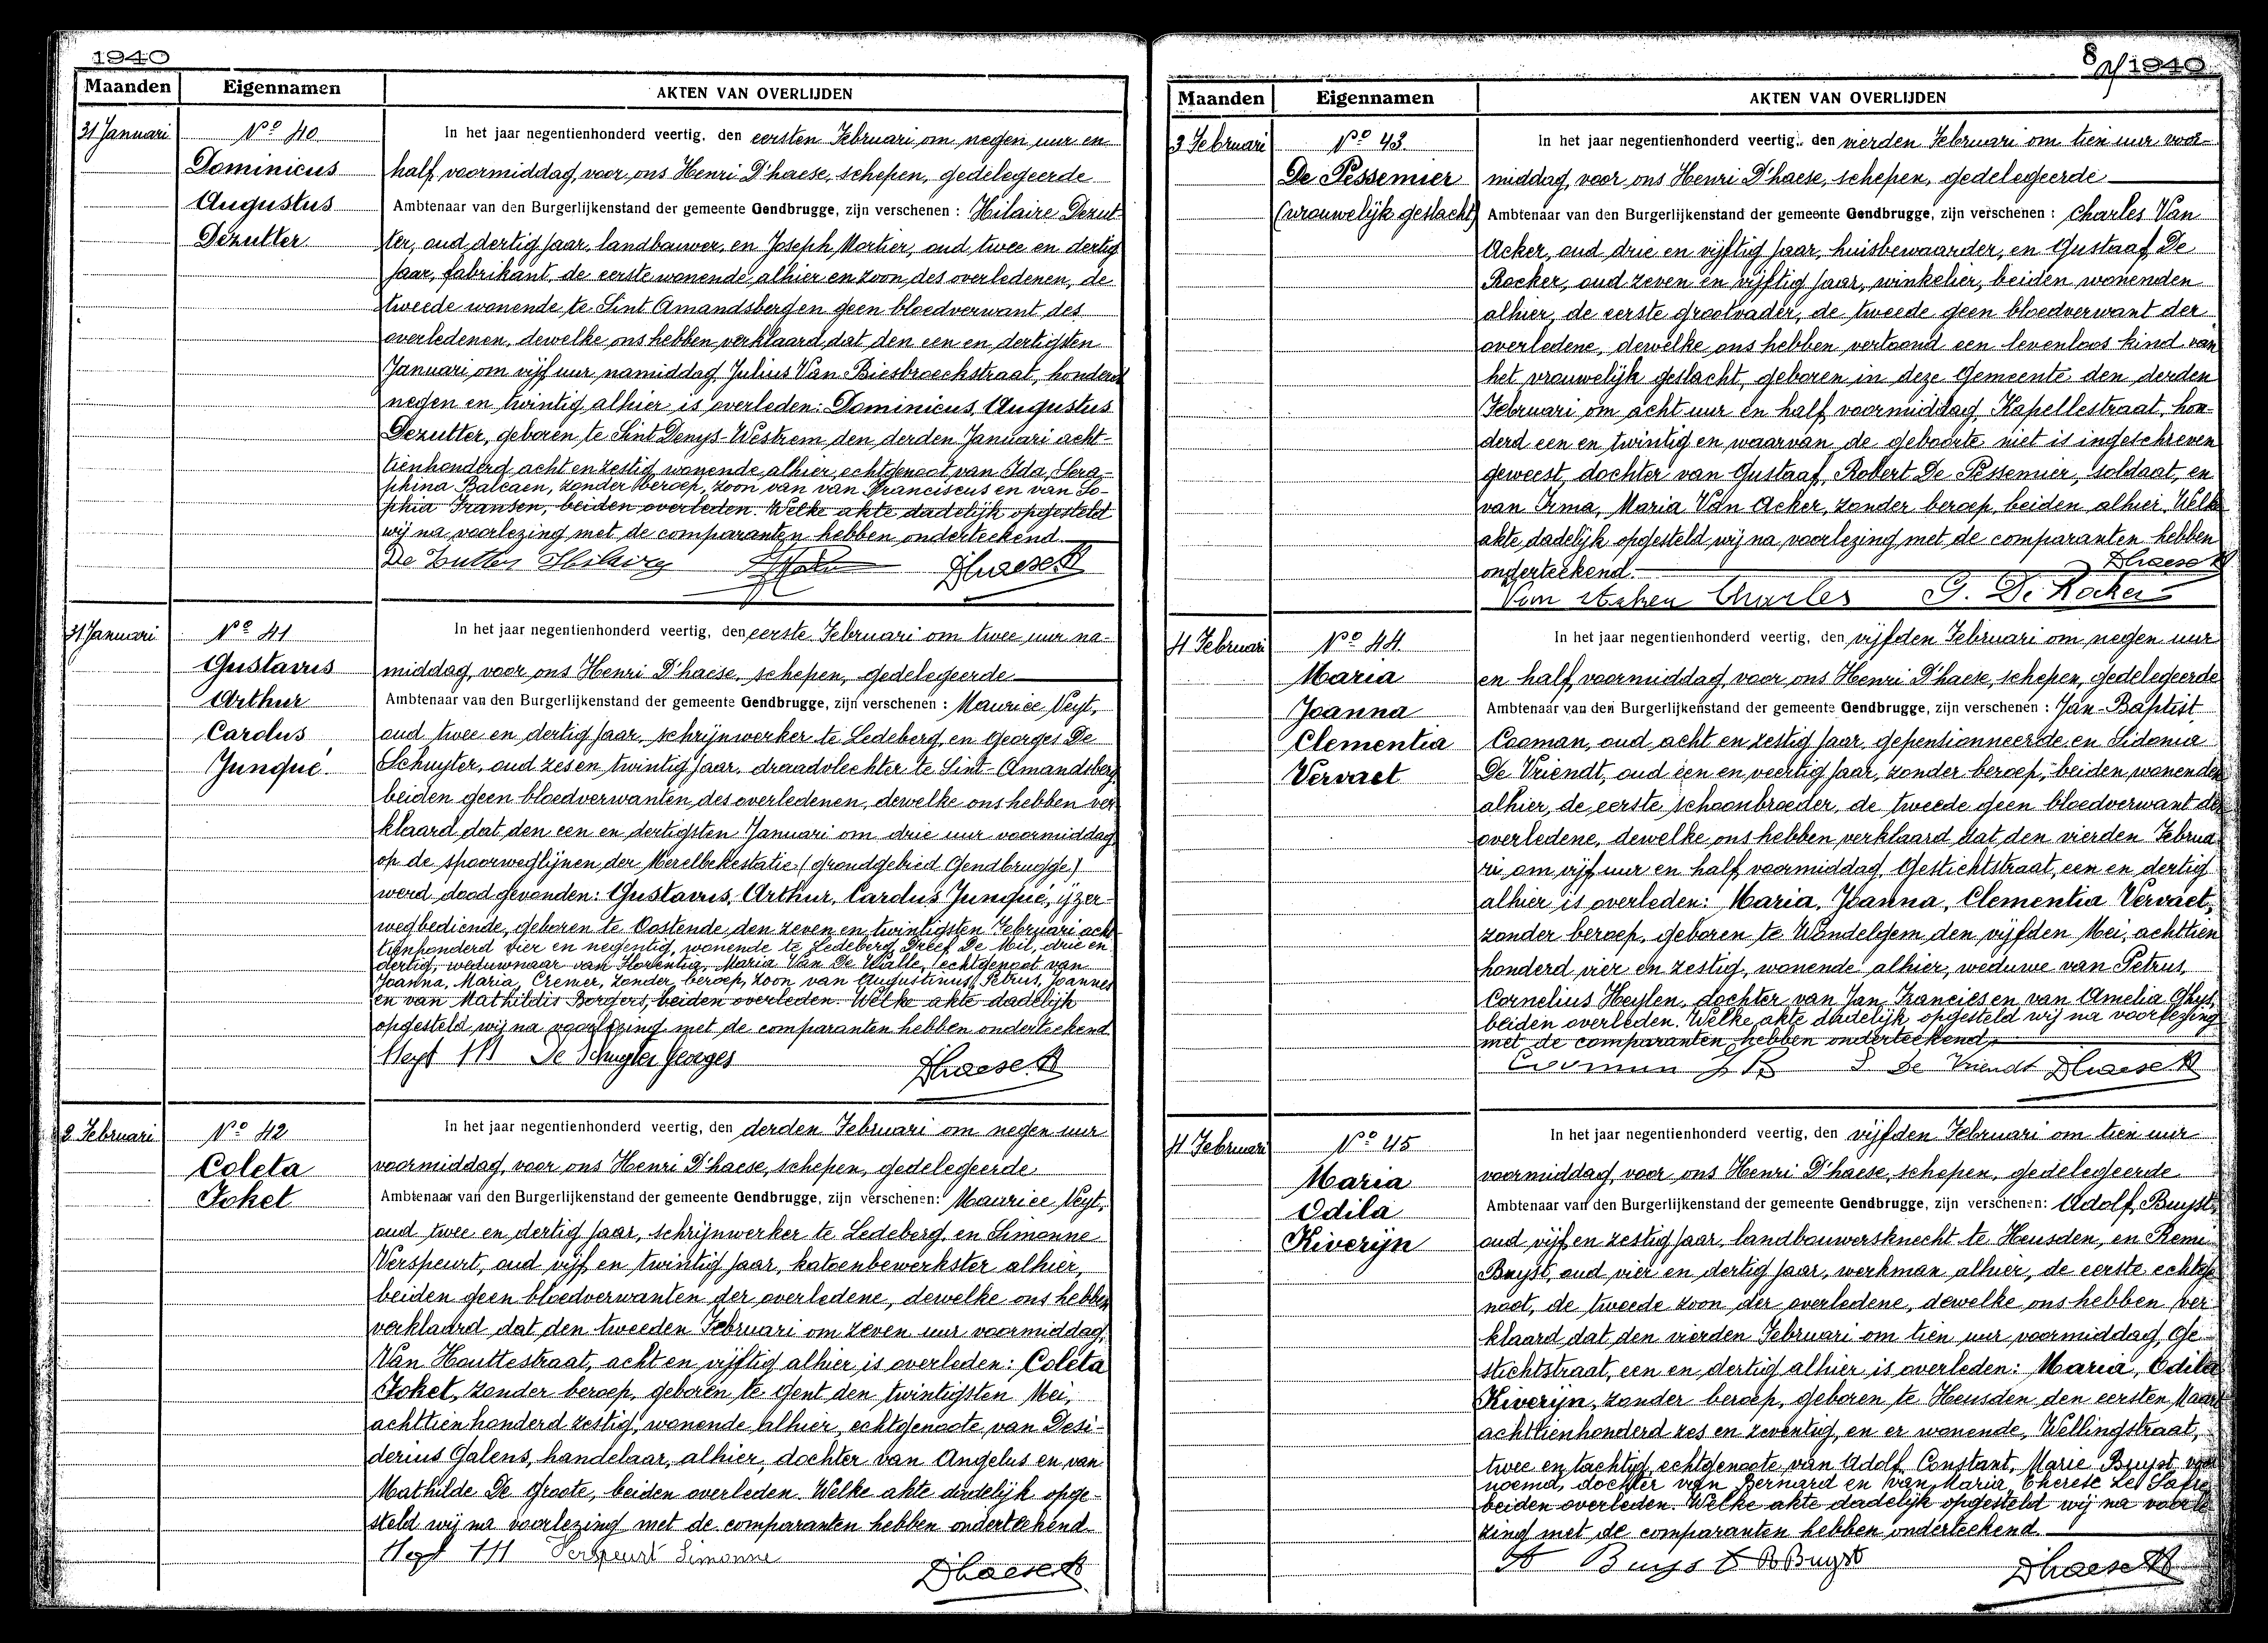 1940
Maanden Eigennamen AKTEN VAN OVERLIJDEN
31 Januari
Nº 40
Dominicus
Augustus
Dezutter
In het jaar negentienhonderd veertig, den eersten Februari om negen uur en
half voormiddag, voor ons Henri D'haese, schepen, gedelegeerde
Ambtenaar van den Burgerlijkenstand der gemeente Gendbrugge, zijn verschenen : Hilaire Dezut-
ter, oud dertig jaar, landbouwer, en Joseph Mortier, oud twee en dertig
jaar, fabrikant, de eerste wonende alhier en zoon des overledenen, de
tweede wonende te Sint Amandsberg en geen bloedverwant des
overledenen, dewelke ons hebben verklaard dat den een en dertigsten
Januari om vijf uur namiddag, Julius Van Biesbroeckstraat, honderd
negen en twintig alhier is overleden: Dominicus, Augustus
Dezutter, geboren te Sint Denys-Westrem den derden Januari acht-
tienhonderd acht en zestig, wonende alhier, echtgenoot van Ida, Sera-
phina Balcaen, zonder beroep, zoon van van Franciscus en van So-
phia Fransen, beiden overleden. Welke akte dadelijk opgesteld
wij na voorlezing met de comparanten hebben onderteekend.
De Zutter Hilaire Dhaese H
31 Januari
Nº 41
Gustavus
Arthur
Carolus
Junqué.
In het jaar negentienhonderd veertig, den eerste Februari om twee uur na-
middag, voor ons Henri D'haese, schepen, gedelegeerde
Ambtenaar van den Burgerlijkenstand der gemeente Gendbrugge, zijn verschenen : Maurice Neyt,
oud twee en dertig jaar, schrijnwerker te Ledeberg, en Georges De
Schuyter, oud zes en twintig jaar, draadvlechter te Sint-Amandsberg,
beiden geen bloedverwanten des overledenen, dewelke ons hebben ver
klaard dat den een en dertigsten Januari om drie uur voormiddag,
op de spoorweglijnen der Merelbekestatie (grondgebied Gendbrugge)
werd dood gevonden: Gustavus, Arthur, Carolus Junqué, ijzer-
wegbediende, geboren te Oostende, den zeven en twintigsten Februari acht-
tienhonderd vier en negentig, wonende te Ledeberg, Dreef De Mil, drie en
dertig, weduwnaar van Florentia, Maria Van De Walle, echtgenoot van
Joanna, Maria, Cremer, zonder beroep, zoon van Augustinus, Petrus, Joannes
en van Mathildis Borgers, beiden overleden. Welke akte dadelijk
opgesteld wij na voorlezing met de comparanten hebben onderteekend
Neyt M De Schuyter Georges Dhaese H
2 Februari
Nº 42
Coleta
Foket
In het jaar negentienhonderd veertig, den derden Februari om negen uur
voormiddag, voor ons Henri D'haese, schepen, gedelegeerde
Ambtenaar van den Burgerlijkenstand der gemeente Gendbrugge, zijn verschenen: Maurice Neyt,
oud twee en dertig jaar, schrijnwerker te Ledeberg, en Simonne
Verspeurt, oud vijf en twintig jaar, katoenbewerkster alhier,
beiden geen bloedverwanten der overledene, dewelke ons hebben
verklaard dat den tweeden Februari om zeven uur voormiddag,
Van Houttestraat, acht en vijftig alhier is overleden: Coleta
Foket, zonder beroep, geboren te Gent den twintigsten Mei,
achttienhonderd zestig, wonende alhier, echtgenoote van Desi-
derius Galens, handelaar, alhier, dochter van Angelus en van
Mathilde De Groote, beiden overleden. Welke akte dadelijk opge-
steld wij na voorlezing met de comparanten hebben onderteekend.
Neyt M Verspeurt Simonne Dhaese H
8 1940
Maanden Eigennamen AKTEN VAN OVERLIJDEN
3 Februari
Nº 43.
De Pessemier
(vrouwelijk geslacht)
In het jaar negentienhonderd veertig, den vierden Februari om tien uur voor-
middag, voor ons Henri D'haese, schepen, gedelegeerde
Ambtenaar van den Burgerlijkenstand der gemeente Gendbrugge, zijn verschenen : Charles Van
Acker, oud drie en vijftig jaar, huisbewaarder, en Gustaaf De
Rocker, oud zeven en vijftig jaar, winkelier, beiden wonenden
alhier, de eerste grootvader, de tweede geen bloedverwant der
overledene, dewelke ons hebben vertoond een levenloos kind van
het vrouwelijk geslacht, geboren in deze Gemeente den derden
Februari om acht uur en half voormiddag, Kapellestraat, hon-
derd een en twintig en waarvan de geboorte niet is ingeschreven
geweest, dochter van Gustaaf, Robert De Pessemier, soldaat, en
van Irma, Maria Van Acker, zonder beroep, beiden alhier. Welke
akte dadelijk opgesteld wij na voorlezing met de comparanten hebben
onderteekend. Dhaese H
Van Acker Charles G. De Rocker
4 Februari
Nº 44.
Maria
Joanna
Clementia
Vervaet
In het jaar negentienhonderd veertig, den vijfden Februari om negen uur
en half voormiddag, voor ons Henri D'haese, schepen, gedelegeerde
Ambtenaar van den Burgerlijkenstand der gemeente Gendbrugge, zijn verschenen : Jan-Baptist
Cooman, oud acht en zestig jaar, gepensionneerde, en Sidonia
De Vriendt, oud een en veertig jaar, zonder beroep, beiden wonenden
alhier, de eerste schoonbroeder, de tweede geen bloedverwant der
overledene, dewelke ons hebben verklaard dat den vierden Februa
ri om vijf uur en half voormiddag, Gestichtstraat, een en dertig
alhier is overleden: Maria, Joanna, Clementia Vervaet,
zonder beroep, geboren te Wondelgem, den vijfden Mei, achttien
honderd vier en zestig, wonende alhier, weduwe van Petrus,
Cornelius Heylen, dochter van Jan, Francies en van Amelia Ghys,
beiden overleden. Welke akte dadelijk opgesteld wij na voorlezing
met de comparanten hebben onderteekend,
Cooman J B S De Vriendt Dhaese H
4 Februari
Nº 45
Maria
Odila
Kiverijn
In het jaar negentienhonderd veertig, den vijfden Februari om tien uur
voormiddag, voor ons Henri D'haese, schepen, gedelegeerde
Ambtenaar van den Burgerlijkenstand der gemeente Gendbrugge, zijn verschenen: Adolf Buyst,
oud vijf en zestig jaar, landbouwersknecht te Heusden, en Remi
Buyst, oud vier en dertig jaar, werkman alhier, de eerste echtge
noot, de tweede zoon der overledene, dewelke ons hebben ver
klaard dat den vierden Februari om tien uur voormiddag, Ge
stichtstraat, een en dertig alhier is overleden: Maria, Odila
Kiverijn, zonder beroep, geboren te Heusden den eersten Maart
achttienhonderd zes en zeventig, en er wonende, Wellingstraat,
twee en tachtig, echtgenoote van Adolf, Constant, Marie Buyst voor
noemd, dochter van Bernard en van Maria, Therese
beiden overleden. Welke akte dadelijk opgesteld wij na voorle
zing met de comparanten hebben onderteekend.
A Buyst R Buyst Dhaese H